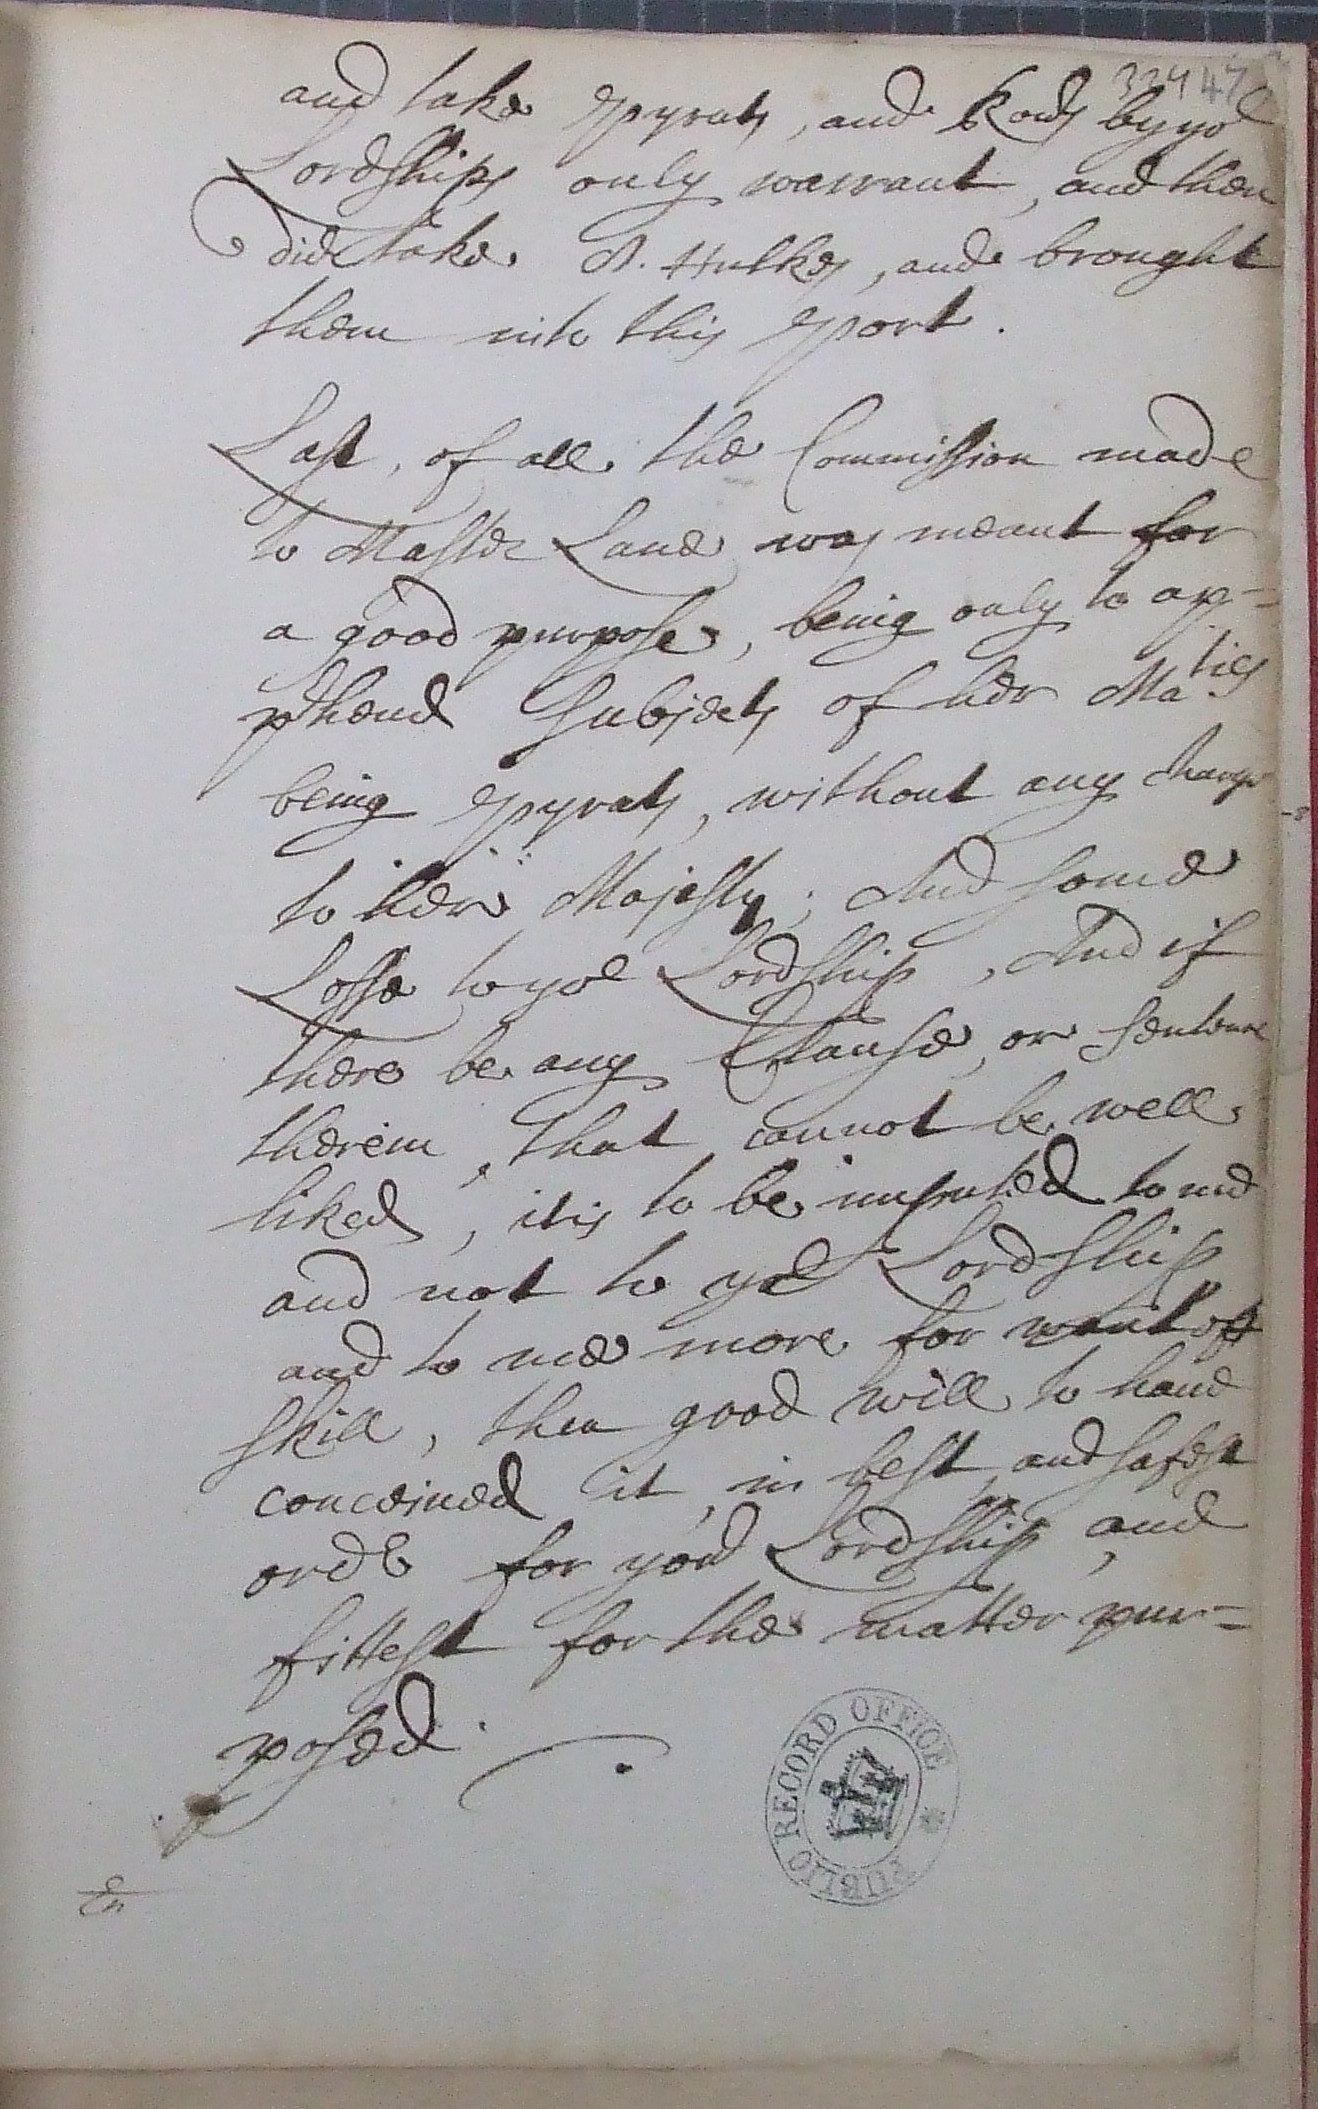 334 47
and take Pyrats, and Roūs by yor
Lordships only warrant, and then
did take A. Hulkes, and brought
them into this Port.
Last, of all the Commission made
to Master Lane was meant for
a good purpose, being only to ap=
prhend Subjects of her Maties
being Pyrats, without any Charge
to here Majesty; And some
Losse to yor Lordship, And if
there be any Clause, or sentence
therein, that cannot be well
liked, it is to be imputed to me
and not to yor Lordship
and to me more for want off
skill, then good will to haue
conceiued it, in best, and safest
ordr for your Lordship, and
fittest for the matter pur=
posed.
Ex
PUBLIC RECORD OFFICE